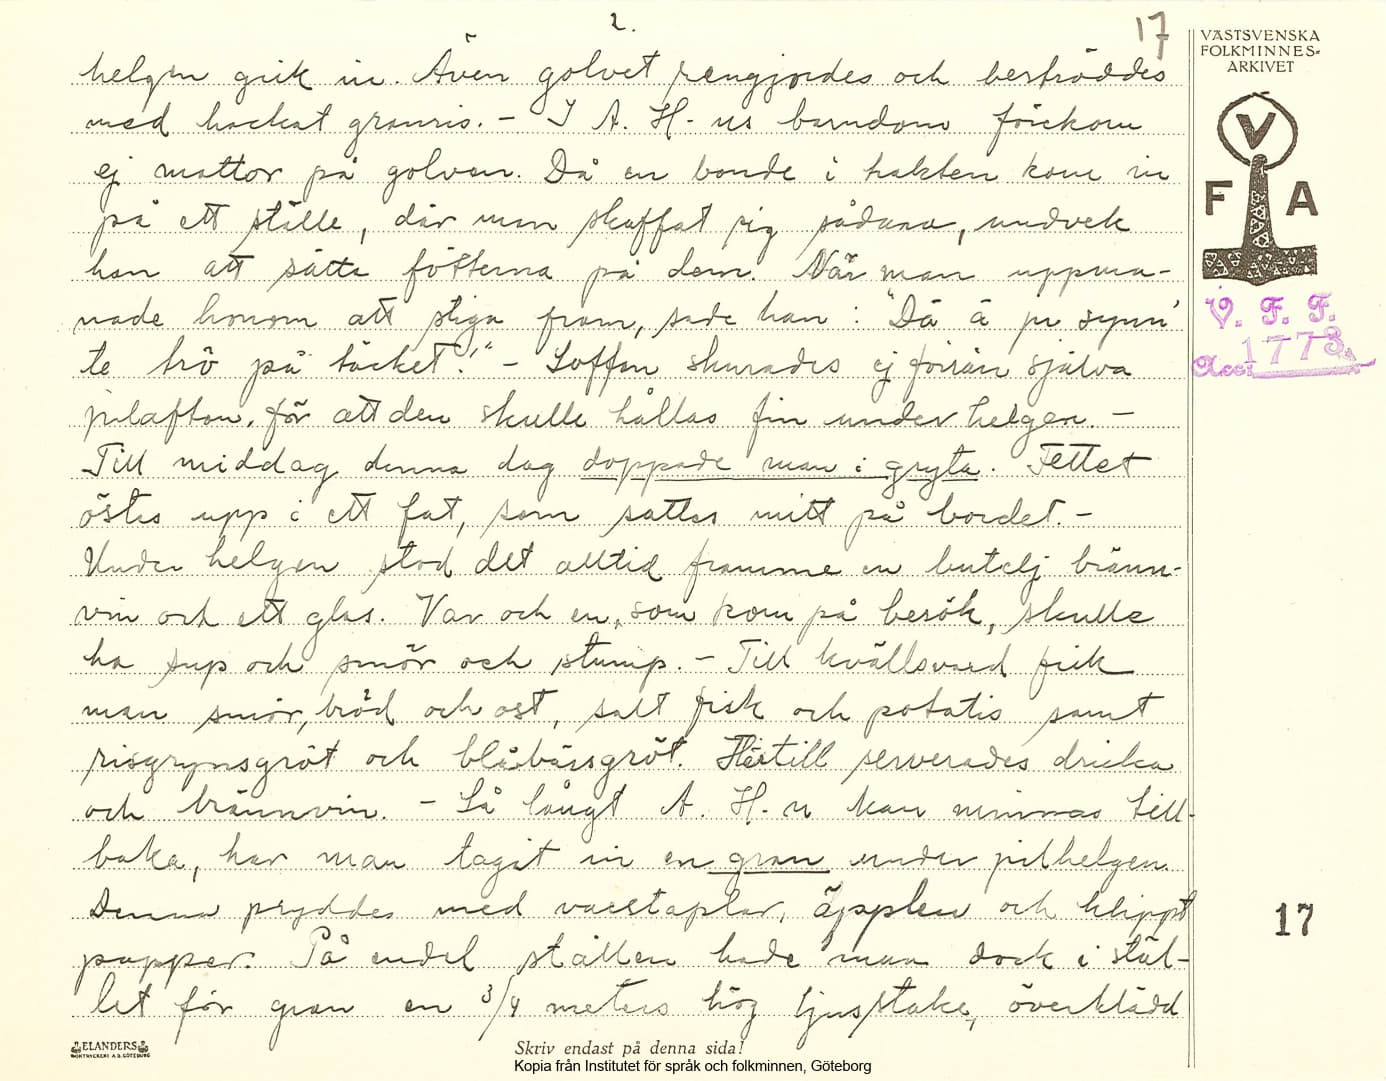 2.
17
VÄSTSVENSKA
FOLKMINNES-
ARKIVET
V
F A
V. F. F.
Acc: 1773
helgen gick in. Även golvet rengjordes och beströddes
med hackat granris. - I A. H-ns barndom förekom
ej mattor på golven. Då en bonde i trakten kom in
på ett ställe, där man skaffat sig sådana, undvek
han att sätta fötterna på dem. När man uppma-
nade honom att stiga fram, sade han: "Dä ä ju synn'
te trö på täcket!" - Loffen skurades ej förrän själva
julafton, för att den skulle hållas fin under helgen. -
Till middag denna dag doppade man i gryta. Fettet
östes upp i ett fat, som sattes mitt på bordet. -
Under helgen stod det alltid framme en butelj bränn-
vin och ett glas. Var och en, som kom på besök, skulle
ha sup och smör och stump. - Till kvällsvard fick
man smör, bröd och ost, salt fisk och potatis samt
risgrynsgröt och blåbärsgröt. Härtill serverades dricka
och brännvin. - Så långt A. H-n kan minnas till-
baka, har man tagit in en gran under julhelgen.
Denna pryddes med vaxstaplar, äpplen och klippt
papper. På endel ställen hade man dock i stäl-
let för gran en 3/4 meters hög ljusstake, överklädd
17
ELANDERS
BOKTRYCKERI A.B. GÖTEBORG
Skriv endast på denna sida!
Kopia från Institutet för språk och folkminnen, Göteborg